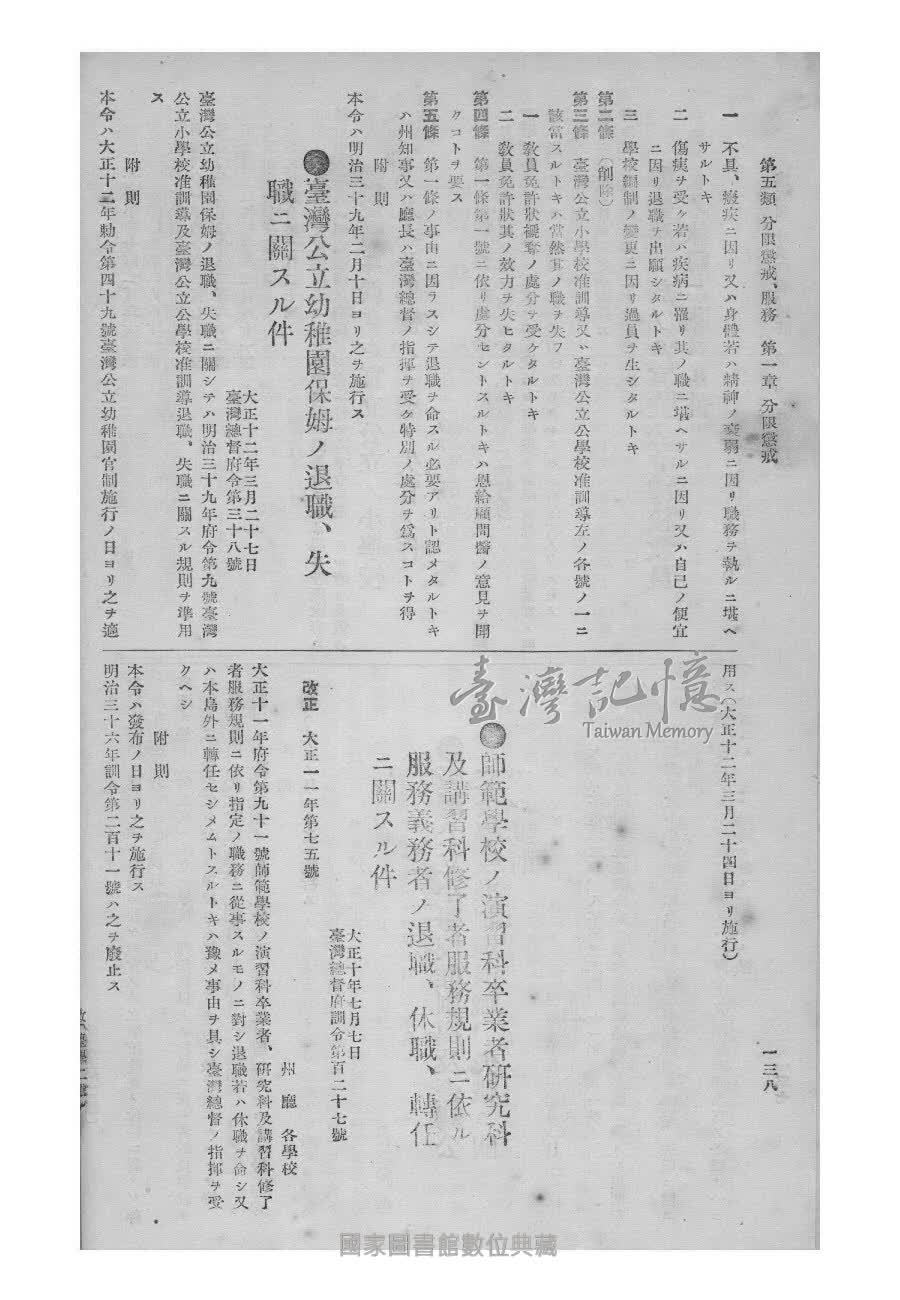 第五類 分限懲戒、服務 第一章 分限懲戒
一三八
一 不具、癈疾ニ因リ又ハ身體若ハ精神ノ衰弱ニ因リ職務ヲ執ルニ堪ヘ
サルトキ
二 傷痍ヲ受ケ若ハ疾病ニ罹リ其ノ職ニ堪ヘサルニ因リ又ハ自己ノ便宜
ニ因リ退職ヲ出願シタルトキ
三 學校編制ノ變更ニ因リ過員ヲ生シタルトキ
第二條 (削除)
第三條 臺灣公立小學校准訓導又ハ臺灣公立公學校准訓導左ノ各號ノ一ニ
該當スルトキハ當然其ノ職ヲ失フ
一 敎員免許狀褫奪ノ處分ヲ受ケタルトキ
二 敎員免許狀其ノ效力ヲ失ヒタルトキ
第四條 第一條第一號ニ依リ處分セントスルトキハ恩給顧問醫ノ意見ヲ聞
クコトヲ要ス
第五條 第一條ノ事由ニ因ラスシテ退職ヲ命スル必要アリト認メタルトキ
ハ州知事又ハ廳長ハ臺灣總督ノ指揮ヲ受ケ特別ノ處分ヲ爲スコトヲ得
附則
本令ハ明治三十九年二月十日ヨリ之ヲ施行ス
臺灣公立幼稚園保姆ノ退職、失
職ニ關スル件
大正十二年三月二十七日
臺灣總督府令第三十八號
臺灣公立幼稚園保姆ノ退職、失職ニ關シテハ明治三十九年府令第九號臺灣
公立小學校准訓導及臺灣公立公學校准訓導退職、失職ニ關スル規則ヲ準用
ス
附則
本令ハ大正十二年勅令第四十九號臺灣公立幼稚園官制施行ノ日ヨリ之ヲ適
用ス(大正十二年三月二十四日ヨリ施行)
臺灣記憶
Taiwan Memory
師範學校ノ演習科卒業者研究科
及講習科修了者服務規則ニ依ル
服務義務者ノ退職、休職、轉任
ニ關スル件
大正十年七月七日
臺灣總督府訓令第百二十七號
改正 大正一一年第七五號
州 廳 各學校
大正十一年府令第九十一號師範學校ノ演習科卒業者、研究科及講習科修了
者服務規則ニ依リ指定ノ職務ニ從事スルモノニ對シ退職若ハ休職ヲ命シ又
ハ本島外ニ轉任セシメムトスルトキハ豫メ事由ヲ具シ臺灣總督ノ指揮ヲ受
クヘシ
附則
本令ハ發布ノ日ヨリ之ヲ施行ス
明治三十六年訓令第二百十一號ハ之ヲ廢止ス
國家圖書館數位典藏